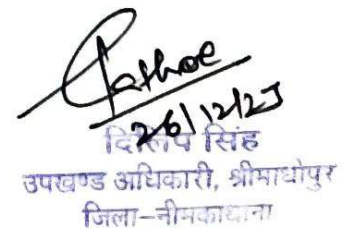 26/12/23
दिलिप सिंह
उपखण्ड अधिकारी, श्रीमाधोपुर
जिला-नीमकाथाना